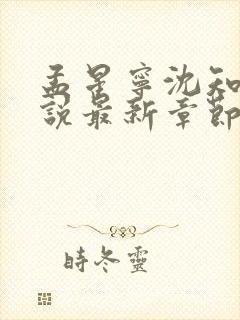 孟星寧沈知
說最新章節
時冬靈